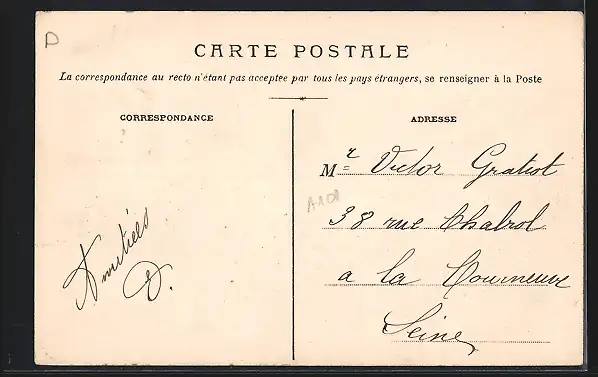 D
CARTE POSTALE
La correspondance au recto n'étant pas acceptée par tous les pays étrangers, se renseigner à la Poste
CORRESPONDANCE
ADRESSE
Mr Victor Gratiot
38 rue Chabrol
a la Courneuve
Seine
Amitiés